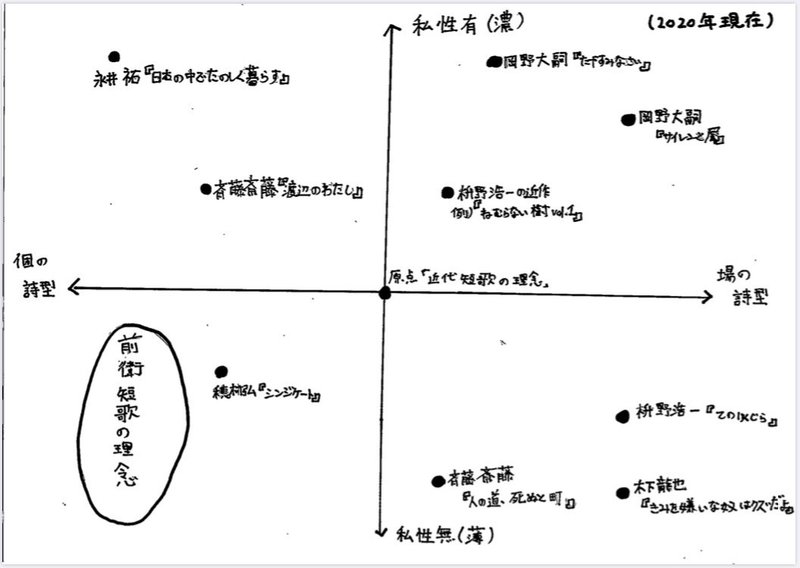 私性有(濃)
(2020年現在)
永井祐『日本の中でたのしく暮らす』
岡野大嗣『たやすみなさい』
岡野大嗣
『サイレンと犀』
斉藤斎藤『渡辺のわたし』
枡野浩一の近作
例)『ねむらない樹vol.1』
個の
詩型
原点「近代短歌の理念」
場の
詩型
前衛短歌の理念
穂村弘『シンジケート』
枡野浩一『てのりくじら』
斉藤斎藤
『人の道、死ぬと町』
木下龍也
『きみを嫌いな奴はクズだよ』
私性無(薄)